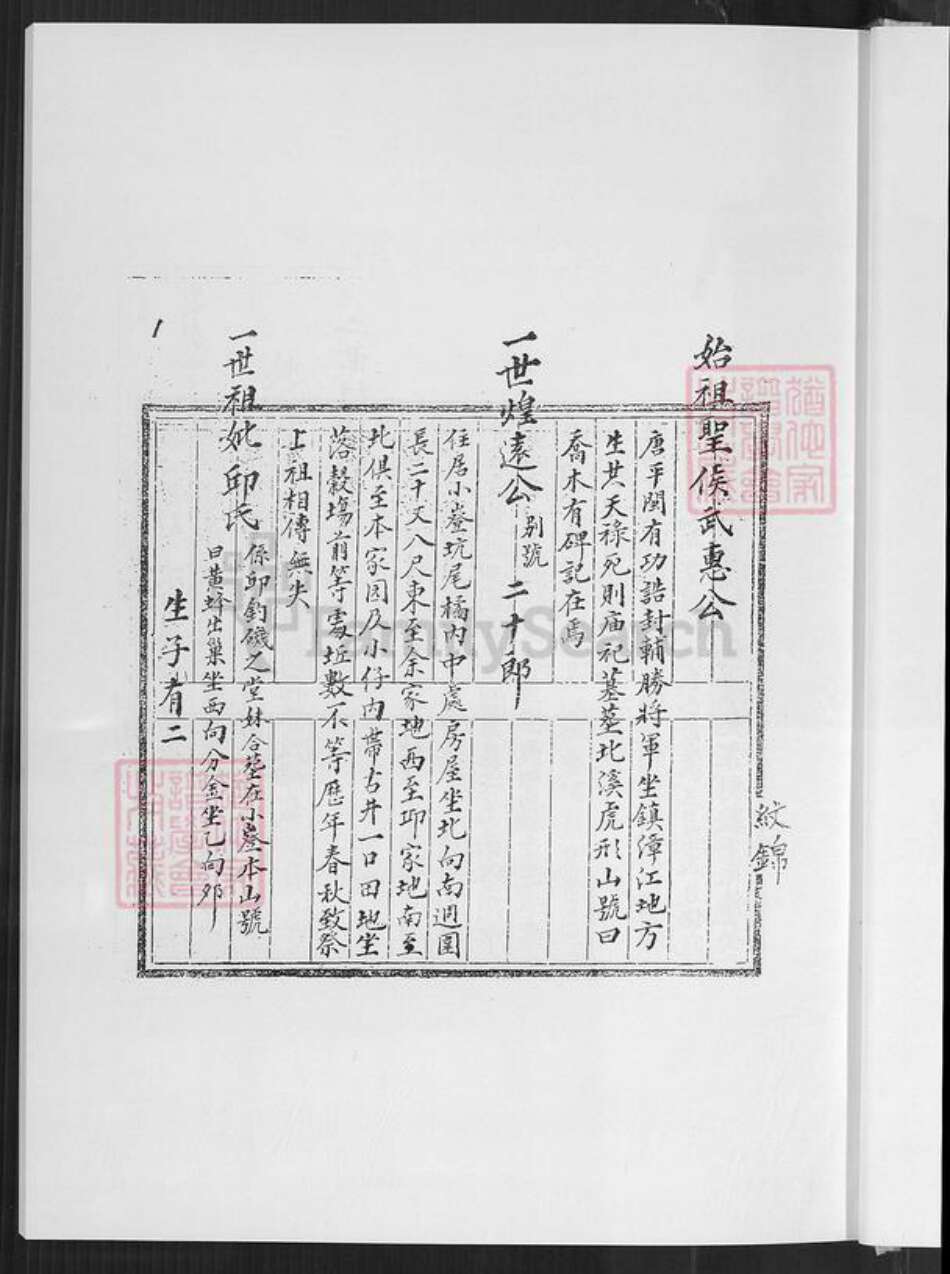 始祖聖侯武惠公
唐平閩有功誥封輔勝將軍坐鎮漳江地方
生共天祿死則庙祀墓塟北溪虎形山號曰
喬木有碑記在焉
一世煌遠公 别號 二十郎
住居小崟坑尾橘内中處房屋坐北向南週圍
長二十又八尺東至余家地西至邱家地南至
北俱至本家因及小仔内帶古井一口田地坐
落穀塲前等處坵數不等歷年春秋致祭
上祖相傳無失
一世祖妣邱氏
係邱釣磯之堂妹合塟在小崟本山號
曰黄蜂出巢坐西向分金坐乙向夘
生子有二
1
紋錦
FamilySearch